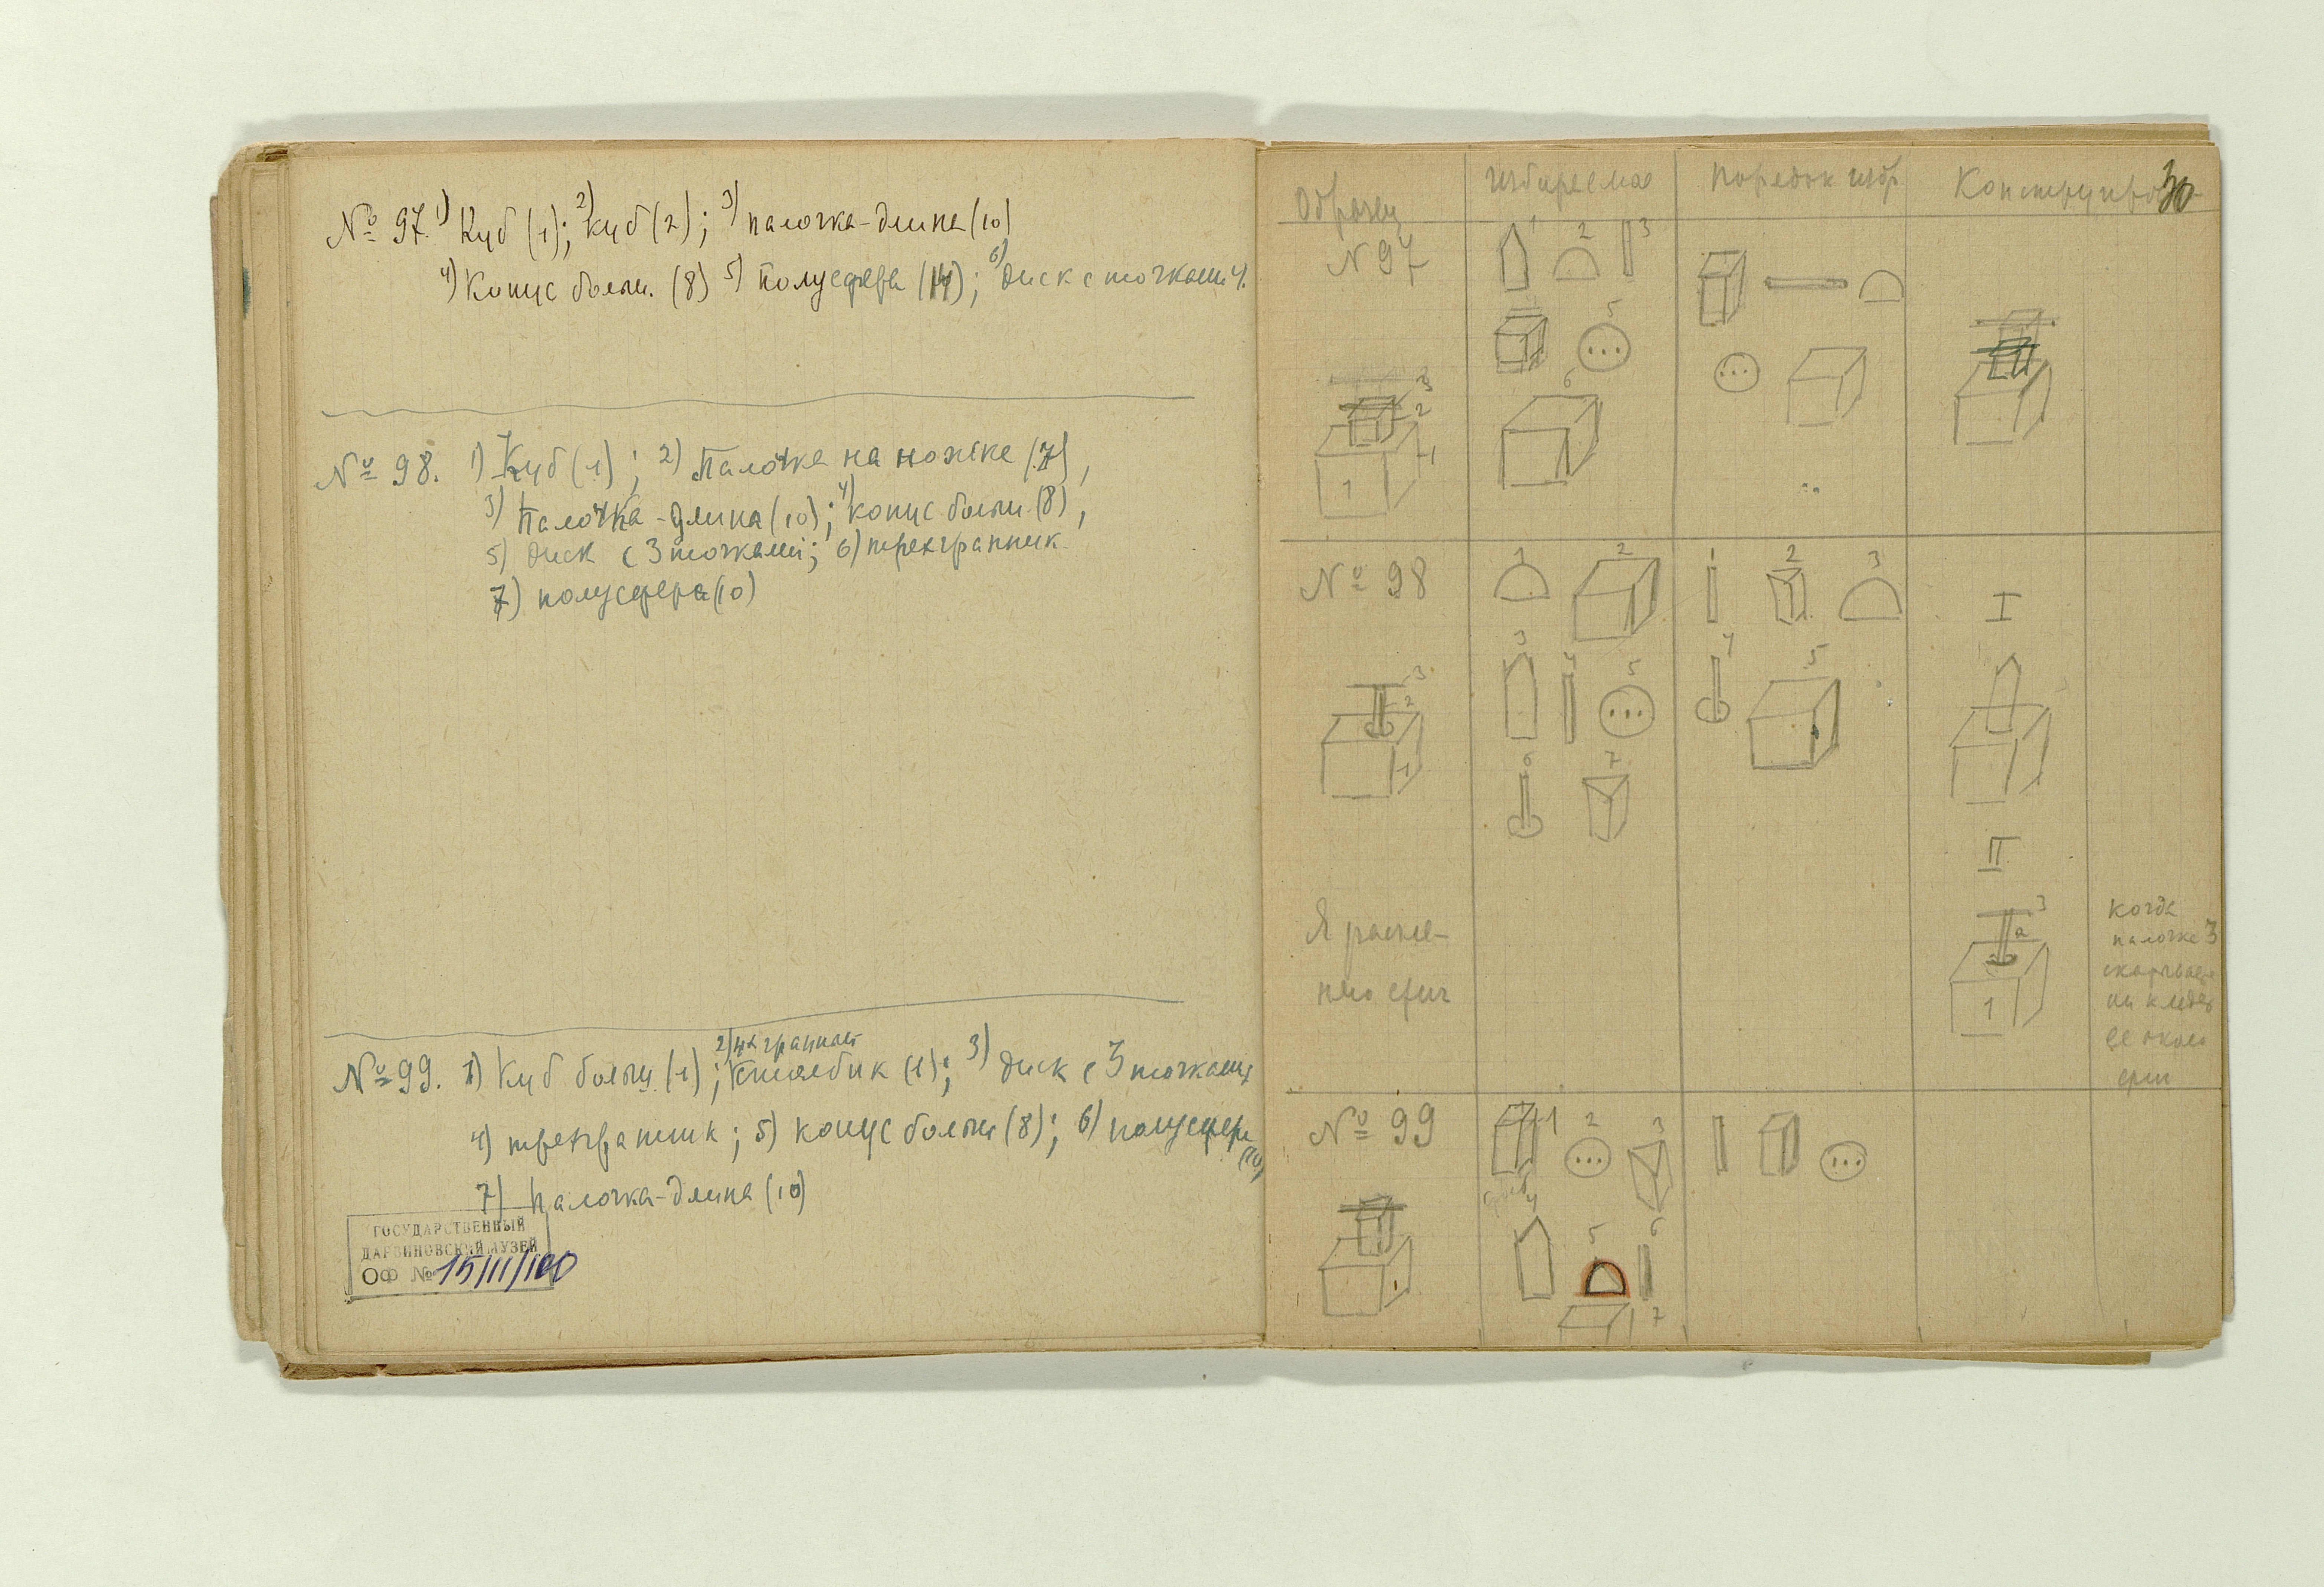 № 97. 1) Куб (1); 2) куб (2); 3) палочка-длина (10)
4) Конус больш. (8) 5) Полусфера (14); 6) диск с точками
№ 98. 1) Куб (1); 2) Палочка на ножке (7),
3) Палочка-длина (10); 4) конус больш. (8),
5) диск с 3 точками; 6) трехгранник
7) полусфера (10)
2) 4х гранный
№ 99. 1) Куб больш. (1); столбик (1); 3) диск с 3 точками
4) трехгранник; 5) конус больш (8); 6) полусфера (10)
7) Палочка-длина (10)
ГОСУДАРСТВЕННЫЙ
ДАРВИНОВСКИЙ МУЗЕЙ
ОФ № 15111/100
30
Образец избираемое порядок избр Конструиров
N 97
1 2 3
5
6
3
2
1
1
№ 98
1 2
3 4 5
6 7
1 2 3
4 5
3
2
1
I
II
3
а
1
Когда
палочка 3
ее около
№ 99
1 2 3
4 5 6
7